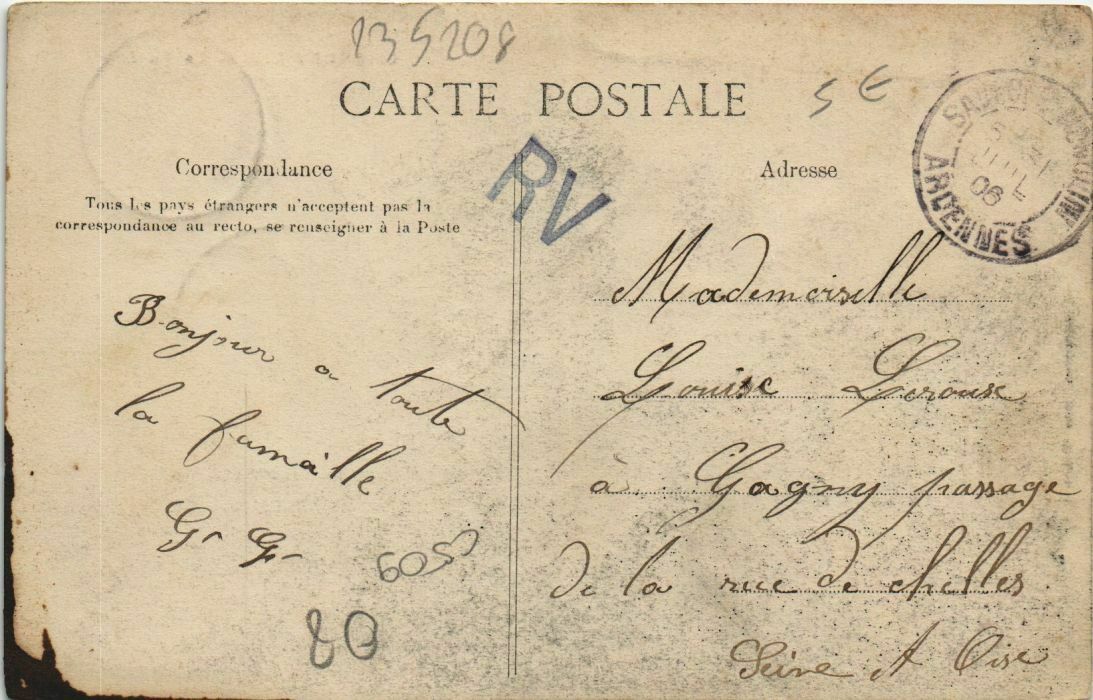 135208
CARTE POSTALE
5 €
Correspondance
Tous les pays étrangers n'acceptent pas la
correspondance au recto, se renseigner à la Poste
RV
Adresse
JUIL
06
ARDENNES
Bonjour a toute
la famaille
G. G.
6053
80
Mademoiselle
Louise Leroux
à Gagny passage
de la rue de chelles
Seine et Oise